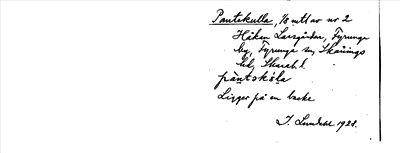 Pantekulla, 1/8 mtl av nr 2
Håken Larsgården, Fyrunga
by, Fyrunga sn, Skånings
hd, Skarab. l.
pàntskö̀la
Ligger på en backe
J. Lundahl 1928.